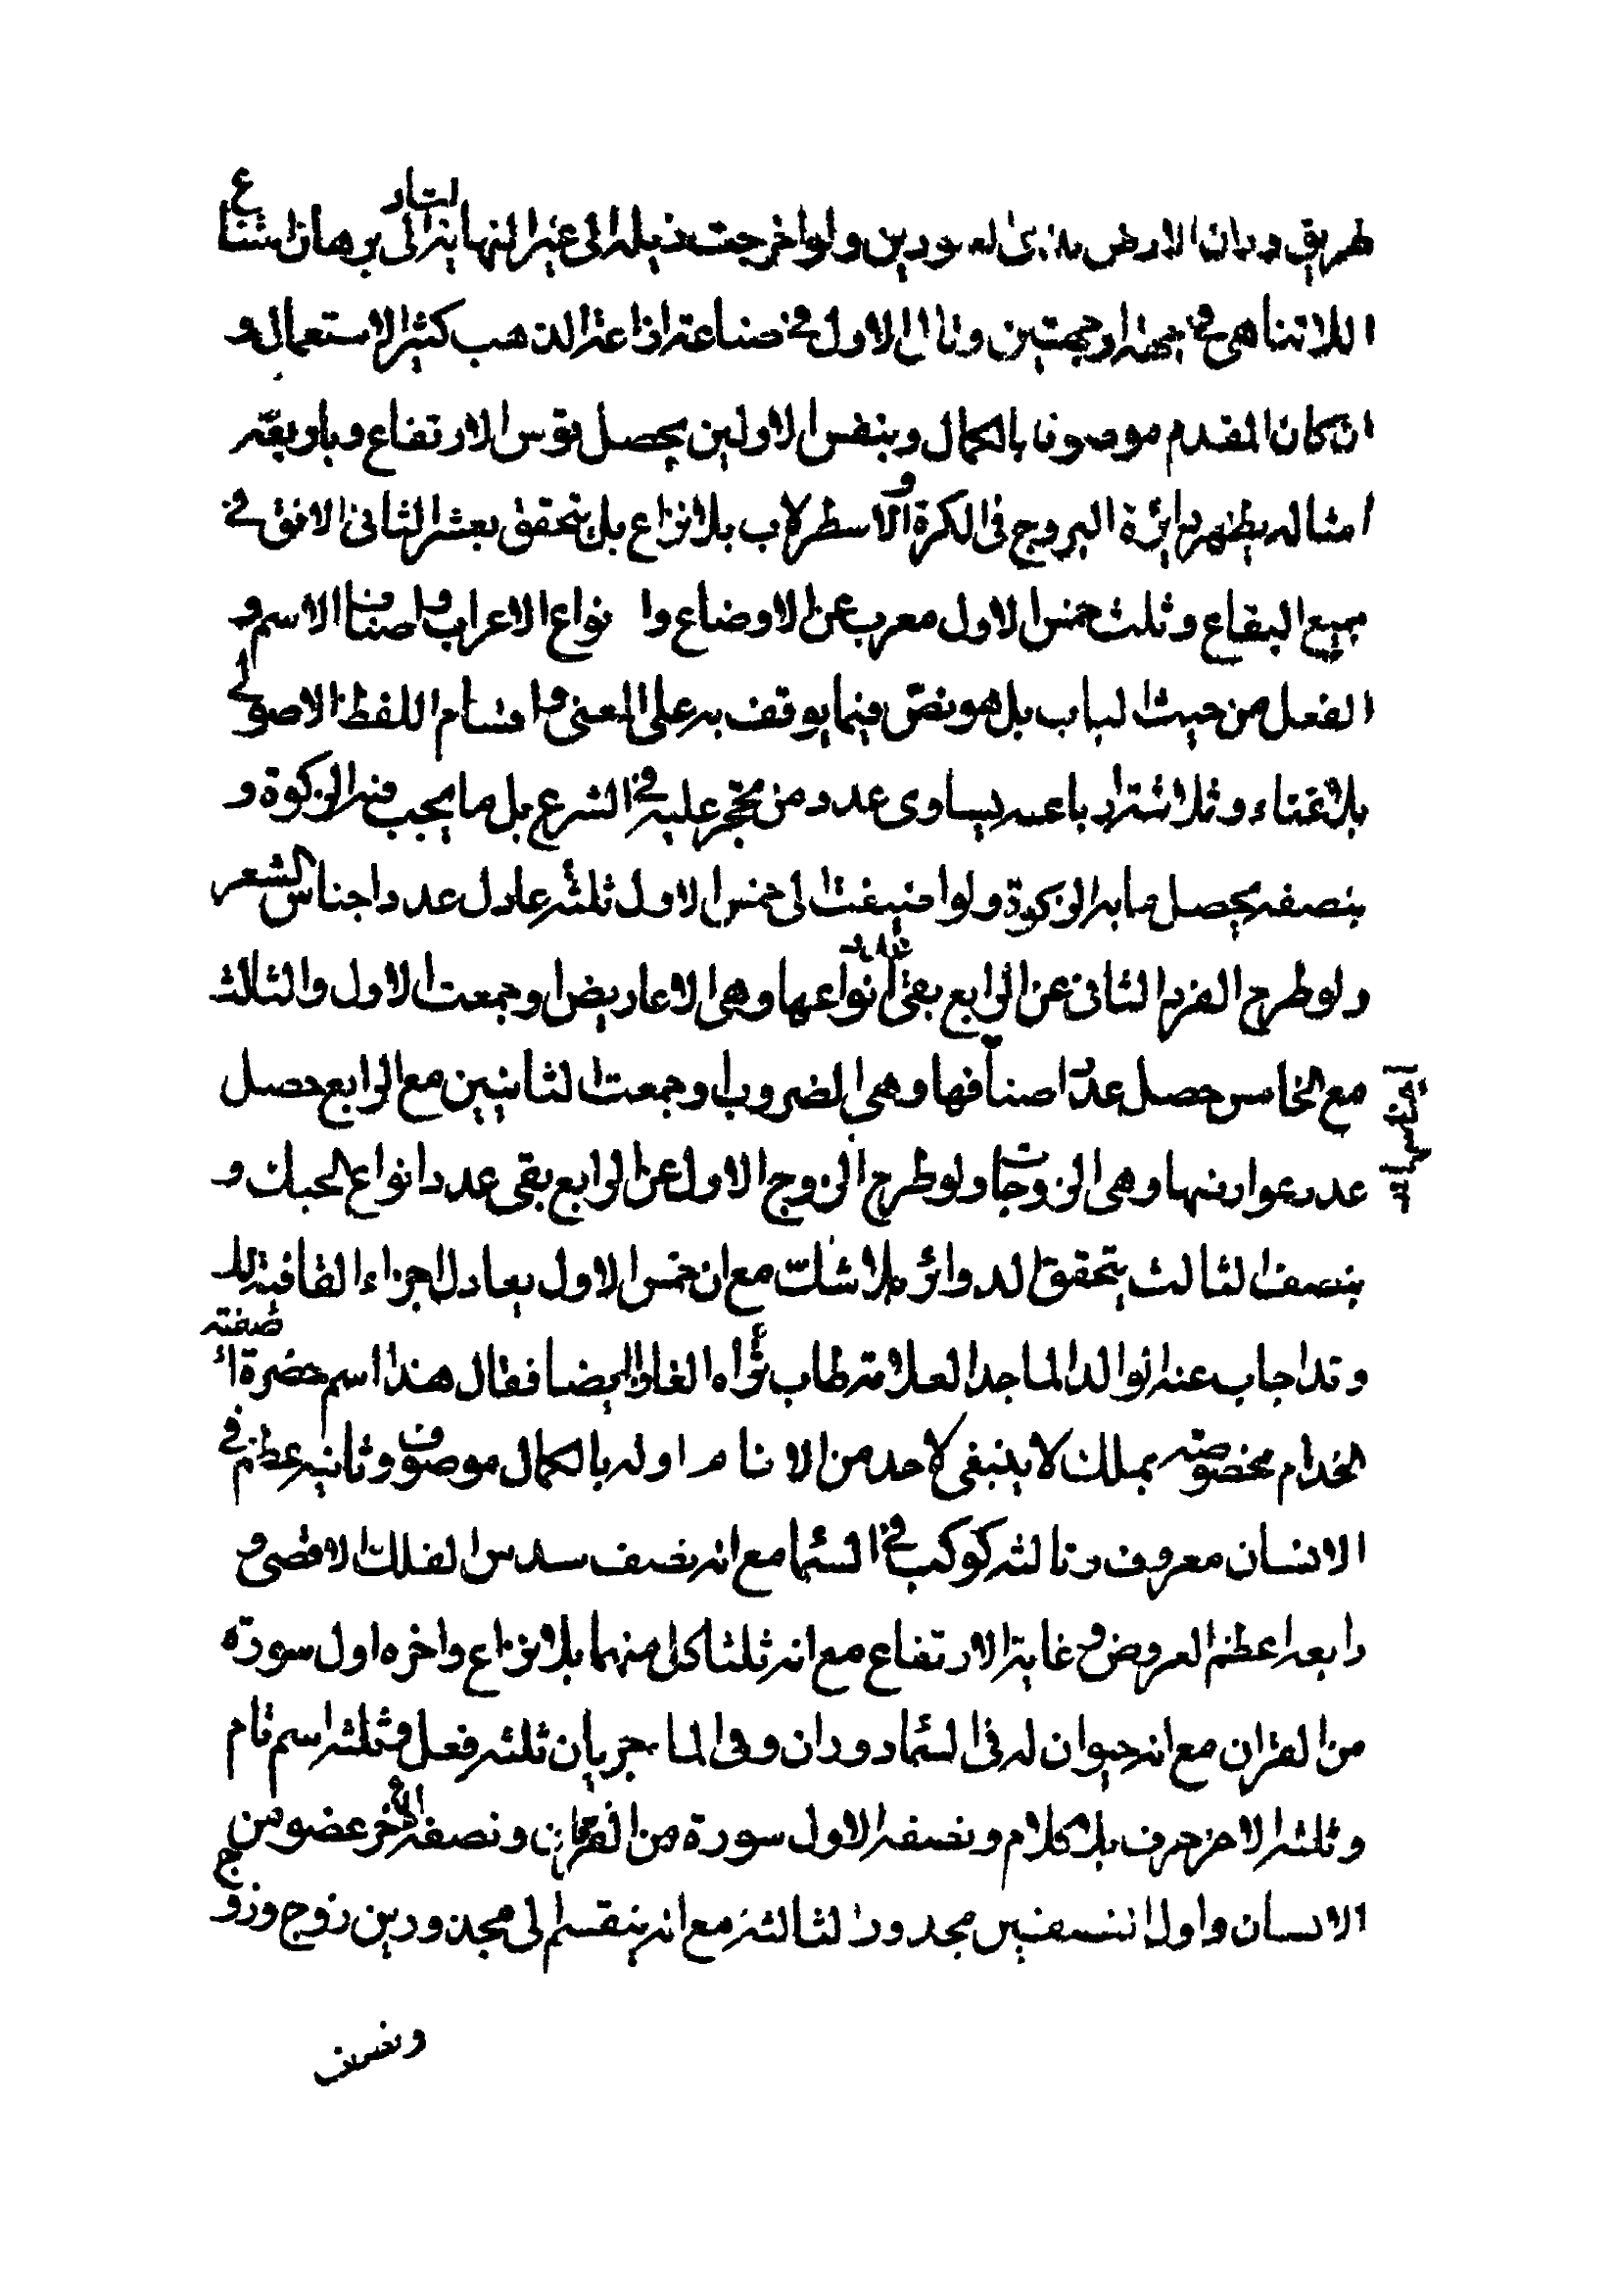 طريق وبان الارض بلا ولو اخرجت ذيله الى غير النهاية اشار الى برهان امتناع
اللاتناهى فى جهة او جهتين وتالى الاول فى صناعة اذاعة الذهب كثير الاستعمال و
ان كان المقدم موصوفا بالكمال وبنفس الاولين يحصل قوس الارتفاع وباربعة
امثاله يظهر دائرة البروج فى الكرة والاسطرلاب بلا نزاع بل يتحقق بعشر الثانى الافق فى
جميع البقاع وثلث خمس الاول معرب عن الاوضاع وانواع الاعراب واصناف الاسم و
الفعل من حيث الباب بل هو نص فيما يوقف به على المعنى واقسام اللفظ الاصولى
بلا وثلاثة ارباعه يساوى عدد من يحجر عليه فى الشرع بل ما يجب فيه الزكوة و
بنصفه يحصل ما به الزكوة ولو اضيفت الى خمس الاول ثلثه عادل عدد اجناس الشعر
ولو طرح الفرد الثانى عن الرابع بقى انواعها وهى الاعاريض او جمعت الاول والثالث
مع الخامس حصل عدد اصنافها وهى الضروب او جمعت الثانيين مع الرابع حصل
عدد عوارضها وهى الزوجات ولو طرح الزوج الاول عن الرابع بقى عدد انواع و
بنصف الثالث يتحقق الدوائر بلا شك مع ان خمس الاول يعادل اجزاء القافية
وقد اجاب عنه الوالد الماجد العلامة طاب ثراه الغازا ايضا فقال هذا اسم حضرة
الخدام مخصوصة بملك لا ينبغى لاحد من الانام اوله بالكمال موصوف وثانيه عظم فى
الانسان معروف وثالثه كوكب فى السما مع انه نصف سدس الفلك الاقصى و
رابعه اعظم العروض وغاية الارتفاع مع انه ثلثا كل منهما بلا نزاع واخره اول سورة
من القران مع انه حيوان له فى السما دوران وفى الما جريان ثلثه فعل وثلثه اسم تام
وثلثه الاخر حرف بلا كلام ونصفه الاول سورة من القران ونصفه الاخر عضو من
الانسان واول النصفين مجذور الثالثة مع انه ينقسم الى مجذورين زوج وزوج
ونصف